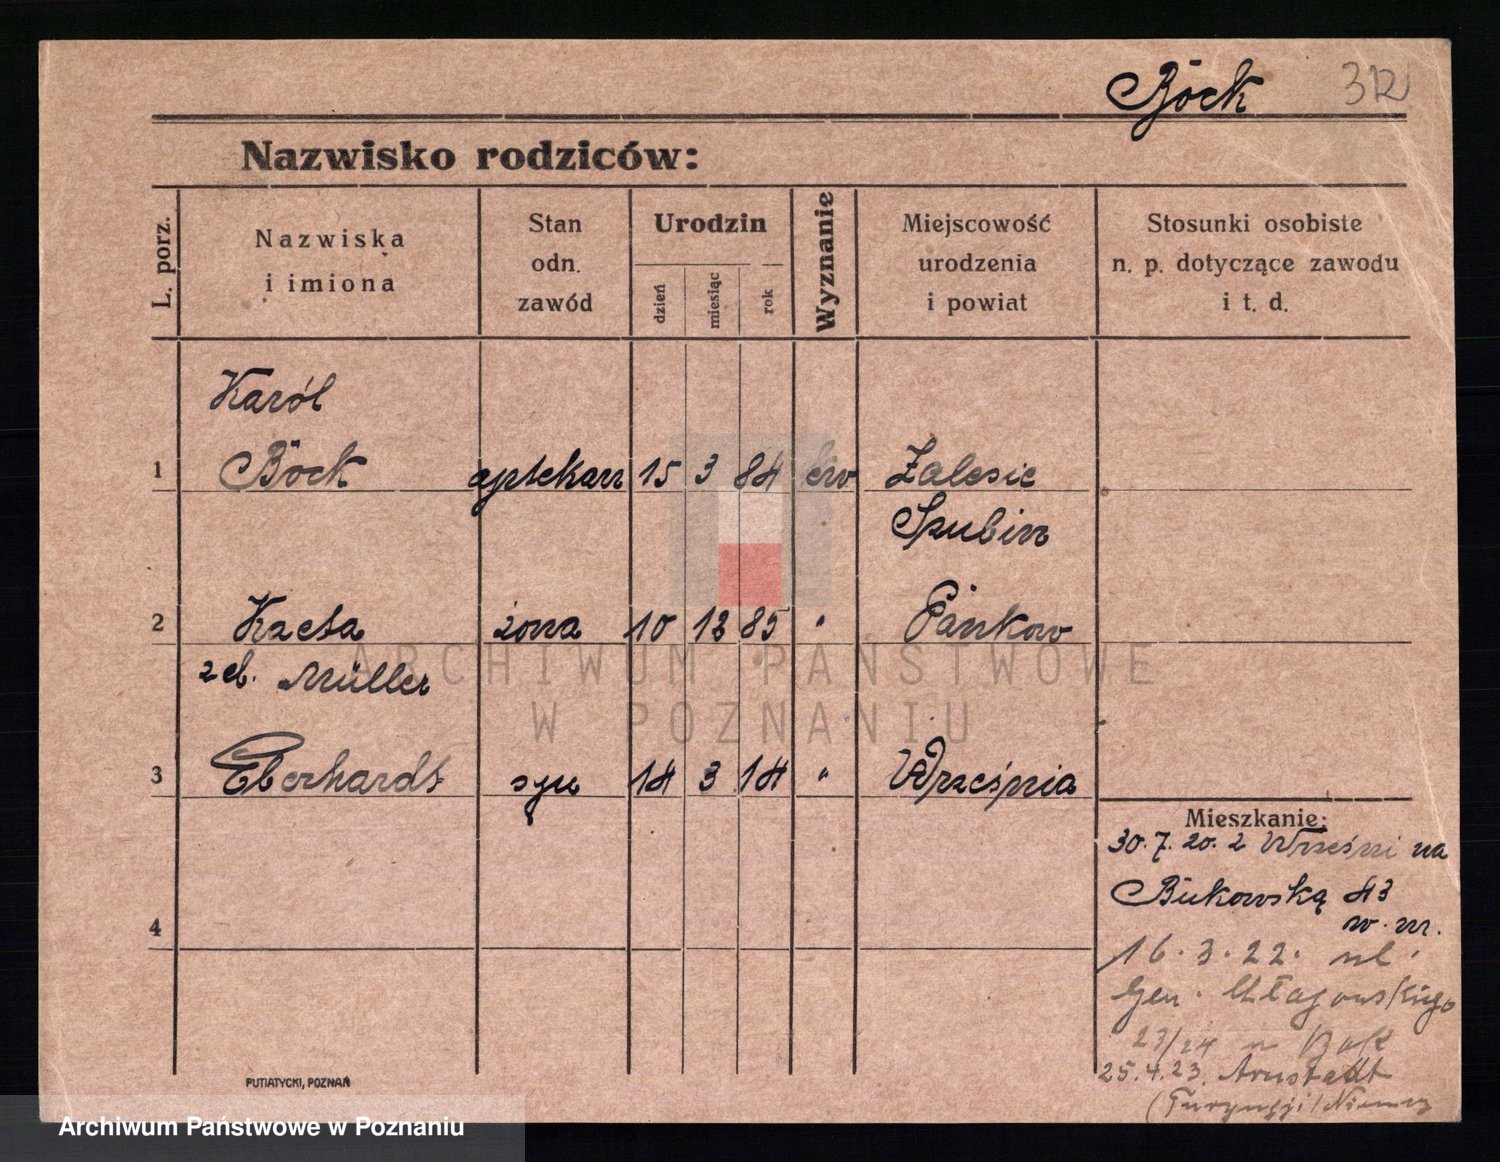 Böck 312
Nazwisko rodziców:
L. porz.
Nazwiska
i imiona
Stan
odn.
zawód
Urodzin
dzień
miesiąc
rok
Wyznanie
Miejscowość
urodzenia
i powiat
Stosunki osobiste
n. p. dotyczące zawodu
i t. d.
Karól
1 Böck aptekarz 15 3 84 ew Zalesie
Szubin
2 Kaeta żona 10 12 85 " Pankow
Müller
3 Eberhardt syn 14 3 14 " Września
Mieszkanie:
30.7.20. z Wrześni na
Bukowską 43
4
w. m.
16.3.22. ul.
Gen. Chłapowskiego
23/24
25.4.23. Arnstadt
(Turyngji/Niemcy
PUTIATYCKI, POZNAŃ
ARCHIWUM PAŃSTWOWE
W POZNANIU
Archiwum Państwowe w Poznaniu